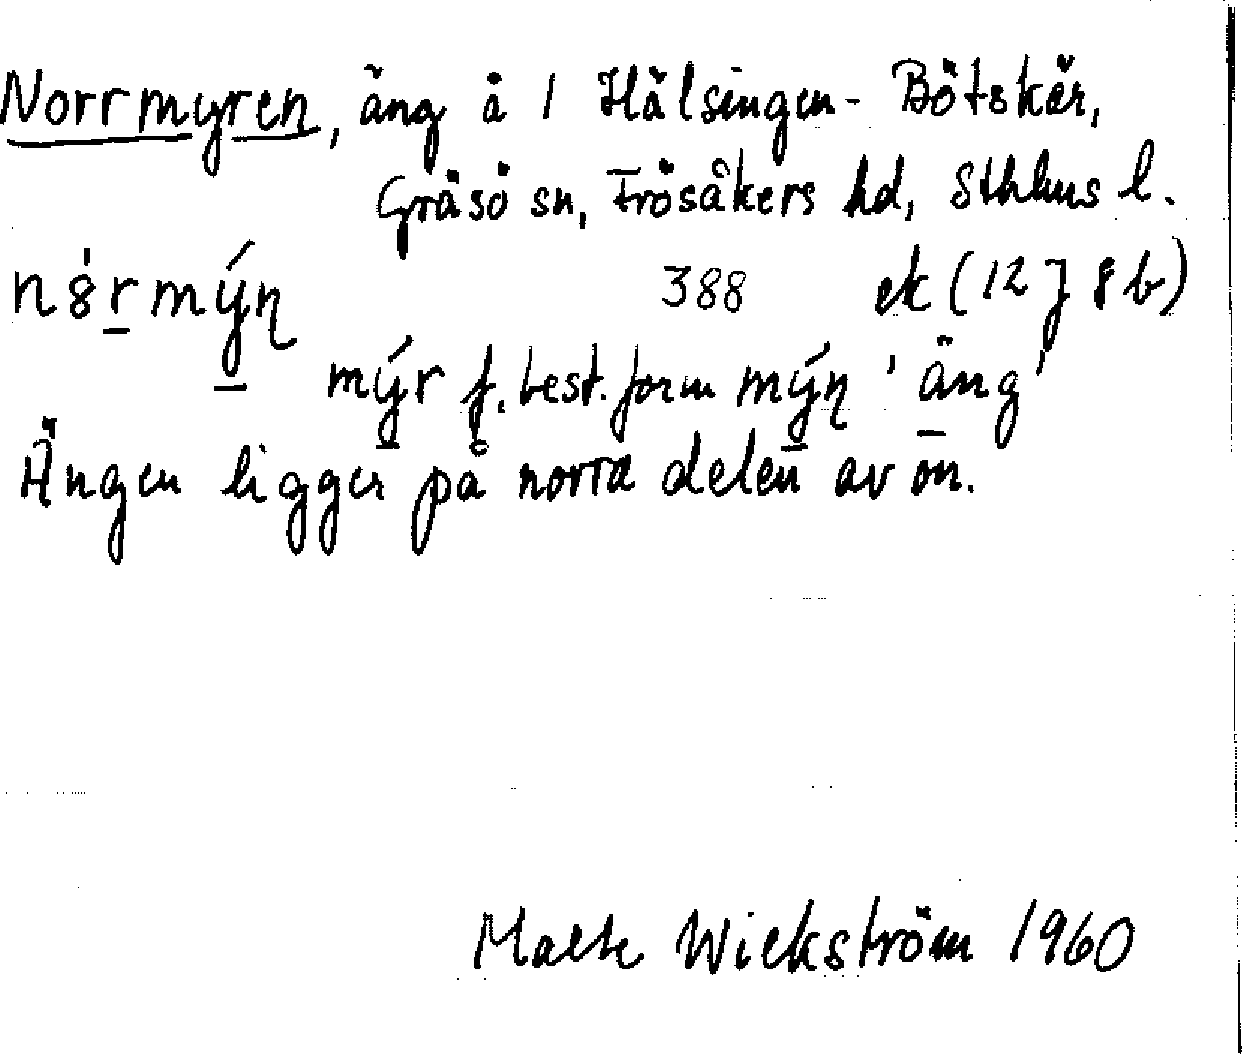 Norrmyren, äng å 1 Hälsingen-Bötskär,
Gräsö sn, Frösåkers hd, Sthlms l.
388 ek (12 J 8 b)
mýr f. best. form mýn 'äng'
Ängen ligger på norra delen av ön.
Malte Wickström 1960